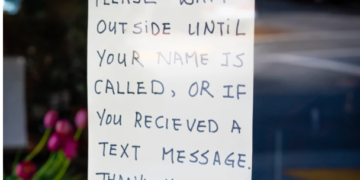 PLEASE WAIT
OUTSIDE UNTIL
YOUR NAME IS
CALLED, OR IF
YOU RECIEVED A
TEXT MESSAGE.